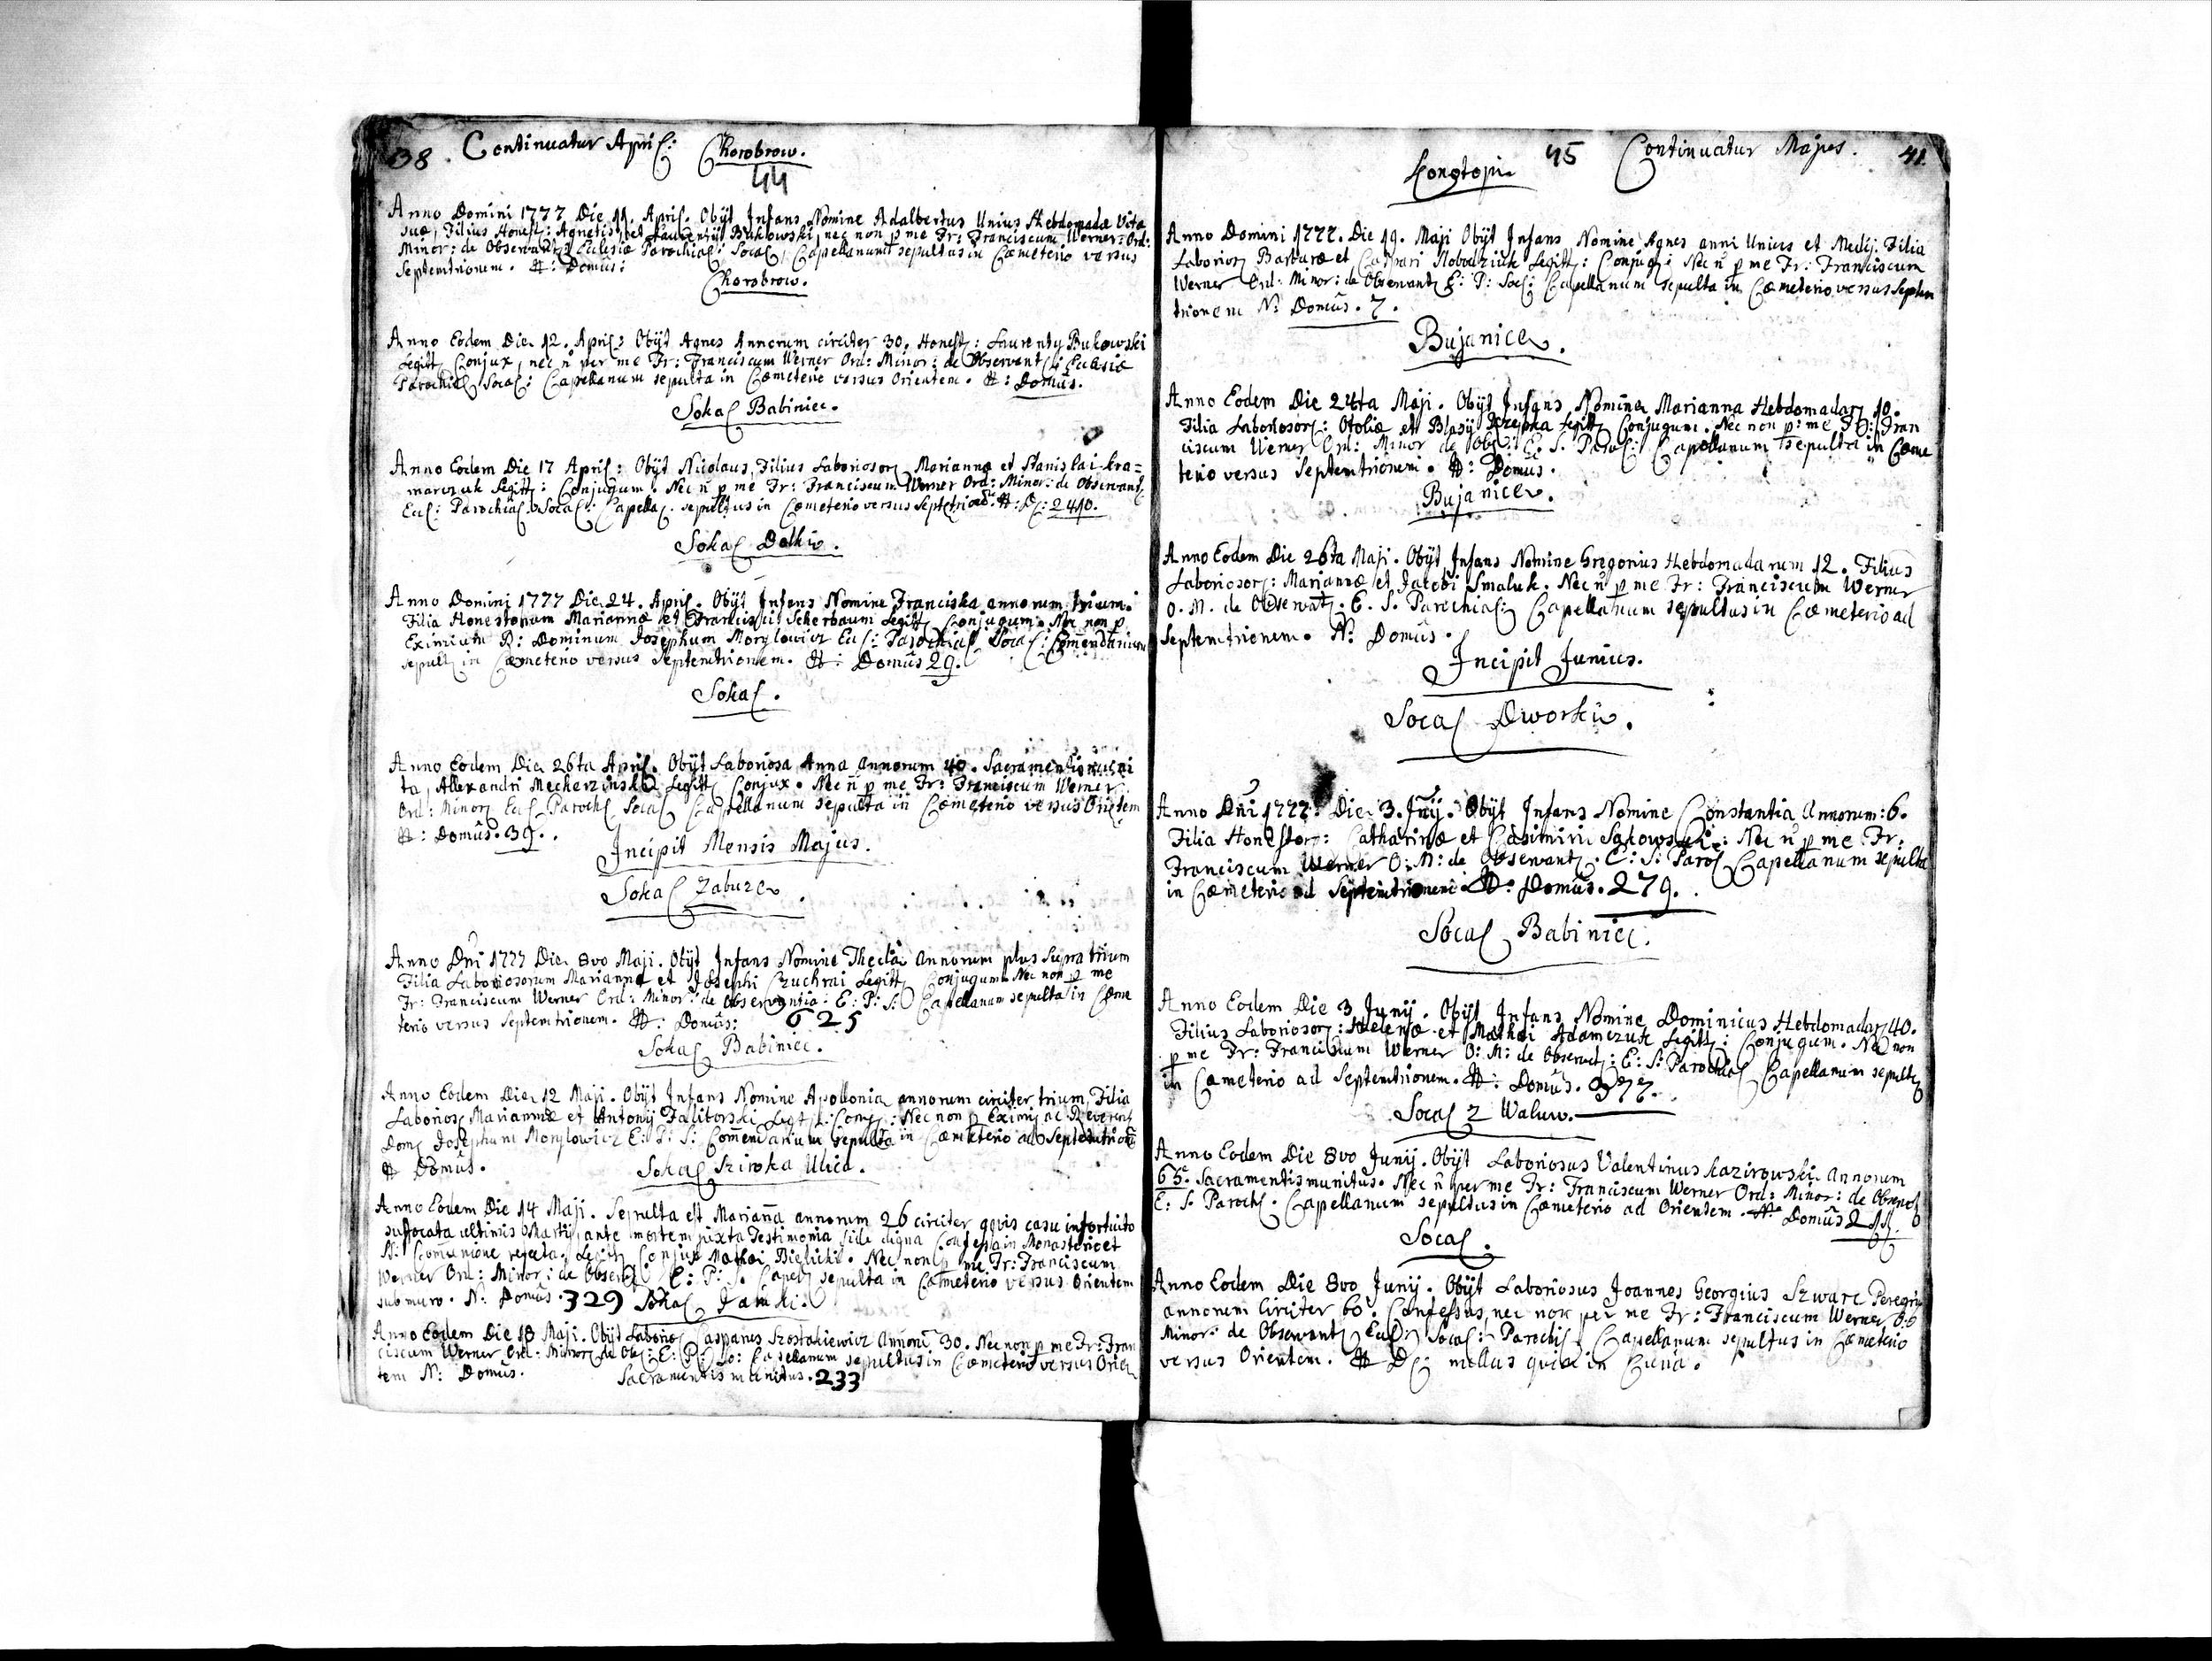 38. Continuatur April: Chorobrow.
44
Anno Domini 1777 Die 11. April. Obijt Infans Nomine Adalbertus Unius Hebdomadæ Vitæ
suæ, Filius Honest: Agnetis, et Laurentij Bukowski, nec non p me Fr: Franciscum Werner Ord:
Minor: de Observant: Eclesiæ Parochial: Socal, Capellanum sepultus in Cæmeterio versus
Septemtrionem. N: Domûs:
Chorobrow.
Anno Eodem Die 12. April: Obijt Agnes Annorum circiter 30. Honest: Laurenty Bukowski
Legitt Conjux, nec n per me Fr: Franciscum Werner Ord: Minor: de Observant: Eclesiæ
Parochial Socal: Capellanum sepulta in Cæmeterio versus Orientem. N: Domûs.
Sokal Babiniec.
Anno Eodem Die 17 April: Obijt Nicolaus, Filius Laboriosor Mariannæ et Stanislai Kra=
marczuk Legitt: Conjugum. Nec n p me Fr: Franciscum Werner Ord: Minor: de Observant
Ecl: Parochial Socal: Capella. sepultus in Cæmeterio versus N: D: 2410.
Sokal Dolki.
Anno Domini 1777 Die 24. April. Obijt Infans Nomine Franciska annorum trium.
Filia Honestorum Mariannæ et Francisci Scherbaum Legitt Conjugum. Nec non p
Eximium R: Dominum Josephum Morylowicz Ecl: Parochial Socal: Comendarium
sepult in Cæmeterio versus Septemtrionem. N: Domûs 29.
Sokal.
Anno Eodem Die 26ta April. Obijt Laboriosa Anna Annorum 40. Sacramentis
ta, Allexandri Mecherzinski Legitt Conjux. Nec n p me Fr: Franciscum Werner
Ord: Minor Ecl Paroch Socal Capellanum sepulta in Cæmeterio versus Orientem
N: Domûs. 39.
Incipit Mensis Majus.
Sokal Zabuze.
Anno Dni 1777 Die 8vo Maji. Obijt Infans Nomine Thecla Annorum plus supra trium
Filia Laboriosorum Mariannæ et Josephi Czuchrai Legitt Conjugum Nec non p me
Fr: Franciscum Werner Ord: Minor: de Observantia: E: P: S: Capellanum sepulta in Cæme
terio versus Septemtrionem. N: Domûs: 625
Sokal Babiniec.
Anno Eodem Die 12 Maji. Obijt Infans Nomine Apollonia annorum circiter trium, Filia
Laborios Mariannæ et Antonij Falitorski Legt: Conj: Nec non p Eximi ac Reverend
Dom Josephum Morylowicz E: P: S: Comendarium sepulta in Cæmeterio ad Septemtrione
N Domûs.
Sokal Sziroka Ulica.
Anno Eodem Die 14 Maji. Sepulta est Marianna annorum 26 circiter casu infortuito
suffocata ultimis Martij, ante mortem juxta Testimonia fide digna Confessa in Monasterio et
S: Comunione refecta. Legitt Conjux Mathei Bielicki. Nec non p me Fr: Franciscum
Werner Ord: Minor: de Observ E: P: S. Capel sepulta in Cæmeterio versus Orientem
sub muro. N: Domûs. 329 Sokal
Anno Eodem Die 18 Maji. Obijt Laborios Casparus Szostakiewicz Annorum 30. Nec non p me Fr: Fran
ciscum Werner Ord: Minor de Obs: E: P: So: Capellanum sepultus in Cæmeterio versus Orien
tem N: Domûs. Sacramentis munitus. 233
Konotopi 45 Continuatur Majus. 41.
Anno Domini 1777. Die 19. Maji Obijt Infans Nomine Agnes anni Unius et Medij. Filia
Laborios Barbaræ et Caspari Slobodziuk Legitt: Conjug: Nec n p me Fr: Franciscum
Werner Ord: Minor: de Observant E: P: Soc: Capellanum sepulta in Cæmeterio versus Septem
trionem N: Domûs. 7.
Bujanice.
Anno Eodem Die 24ta Maji. Obijt Infans Nomine Marianna Hebdomadar 10.
Filia Laboriosor: Otoliæ et Blasij Legitt Conjugum. Nec non p: me Fr: Fran
ciscum Werner Ord: Minor de Obs: E. S. Paroc: Capellanum sepulta in Cæme
terio versus Septemtrionem. N: Domus.
Bujanice.
Anno Eodem Die 26ta Maji. Obijt Infans Nomine Gregorius Hebdomadarum 12. Filius
Laboriosor: Mariannæ et Jacobi Smaluk. Nec n p me Fr: Franciscum Werner
O. M. de Observat. E. S. Parochial: Capellanum sepultus in Cæmeterio ad
Septemtrionem. N: Domûs.
Incipit Junius.
Socal Dworki.
Anno Dni 1777. Die 3. Junij. Obijt Infans Nomine Constantia Annorum: 6.
Filia Honestor: Catharinæ et Casimiri Sakowski: Nec n p me Fr:
Franciscum Werner O: M: de Observant. E: S: Paroc Capellanum sepulta
in Cæmeterio ad Septemtrionem. N: Domûs. 279.
Socal Babiniec.
Anno Eodem Die 3 Junij. Obijt Infans Nomine Dominicus Hebdomadar 40.
Filius Laboriosor: Helenæ et Mathei Adamczuk Legitt: Conjugum. Nec non
p me Fr: Franciscum Werner O: M: de Observat: E: S: Parochial Capellanum sepult
in Cæmeterio ad Septemtrionem. N: Domûs. 377.
Socal z Waluw.
Anno Eodem Die 8vo Junij. Obijt Laboriosus Valentinus Kazirowski Annorum
65. Sacramentis munitus. Nec n per me Fr: Franciscum Werner Ord: Minor: de Observ
E: S. Paroch. Capellanum sepultus in Cæmeterio ad Orientem. N: Domûs
Socal.
Anno Eodem Die 8vo Junij. Obijt Laboriosus Joannes Georgius Szwarc Peregri
annorum Circiter 60. Confessus, nec non per me Fr: Franciscum Werner O:
Minor: de Observant Ecl: Socal: Parochi Capellanum sepultus in Cæmeterio
versus Orientem. N D: in Curia.